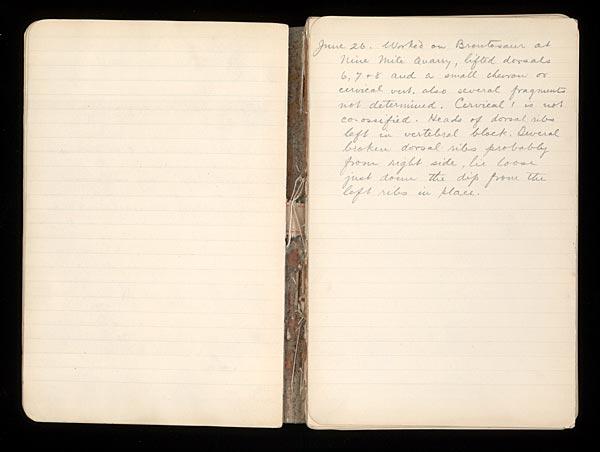 June 26. Worked on Brontosaur at
Nine Mile Quarry, lifted dorsals
6, 7 & 8 and a small chevron or
cervical vert. also several fragments
not determined. Cervical 1 is not
co-ossified. Heads of dorsal ribs
left in vertebral block. Several
broken dorsal ribs probably
from right side, lie loose
just down the dip from the
left ribs in place.